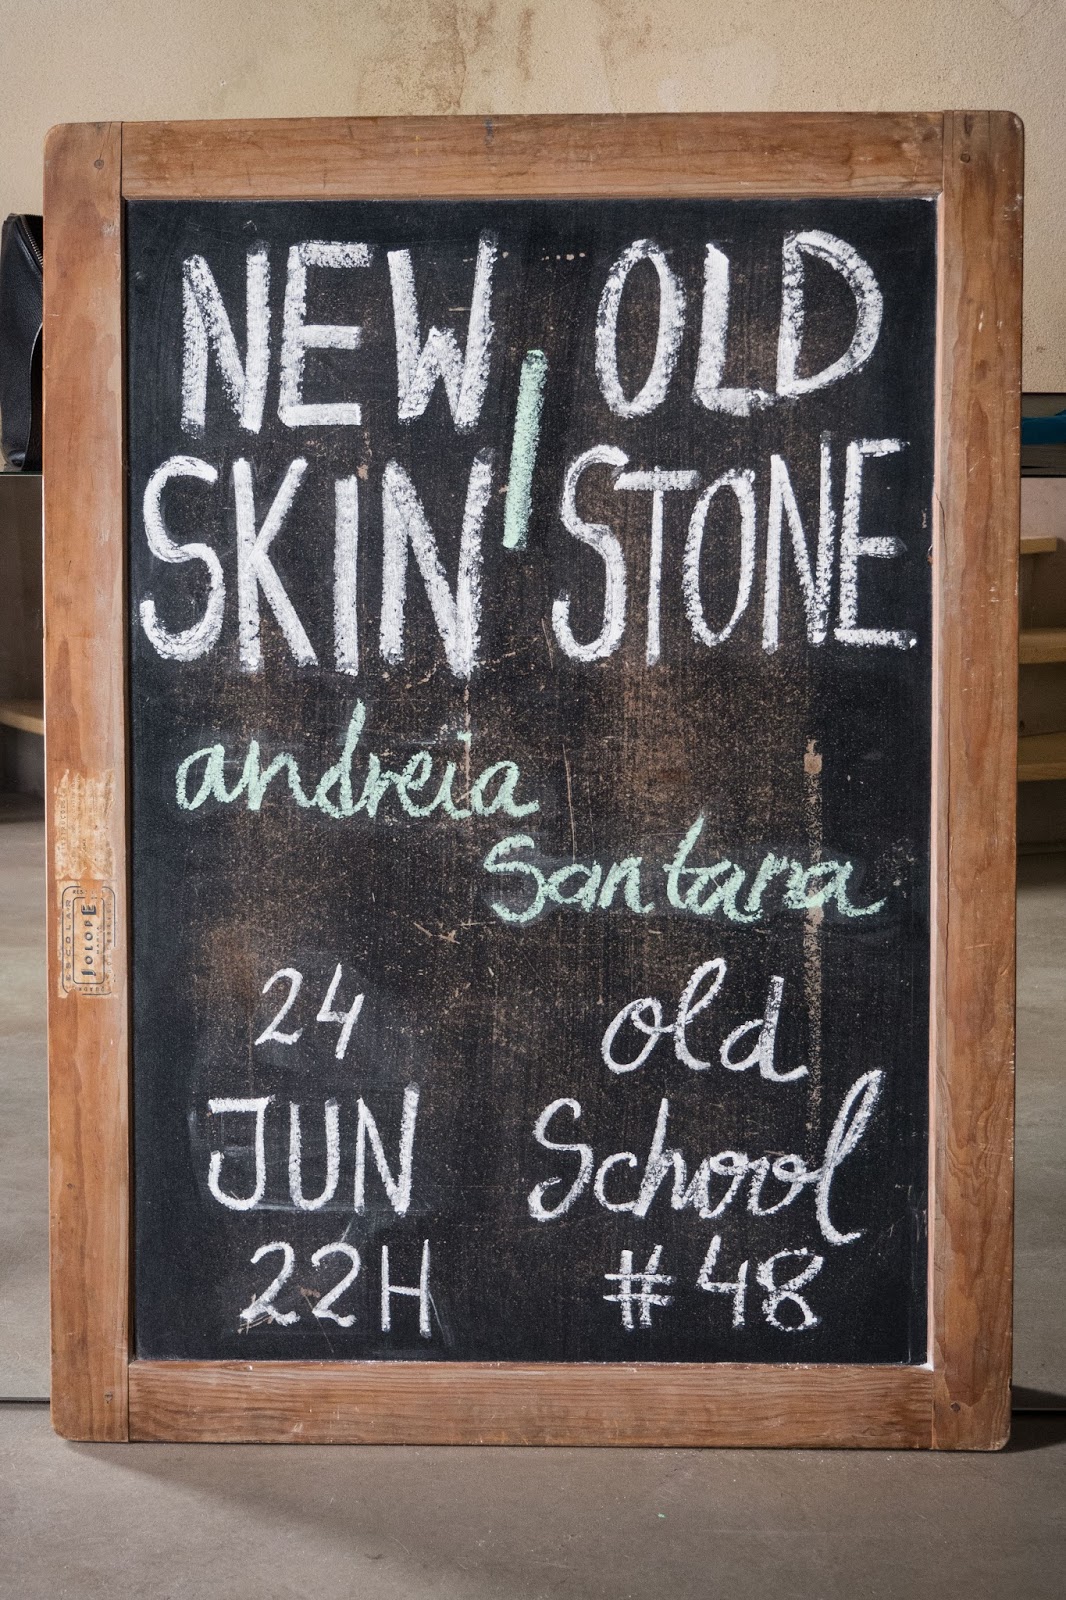 NEW OLD
SKIN / STONE
andreia
Santana
24
JUN
22H
old
School
#48
ESCOLAR
JOLOPE